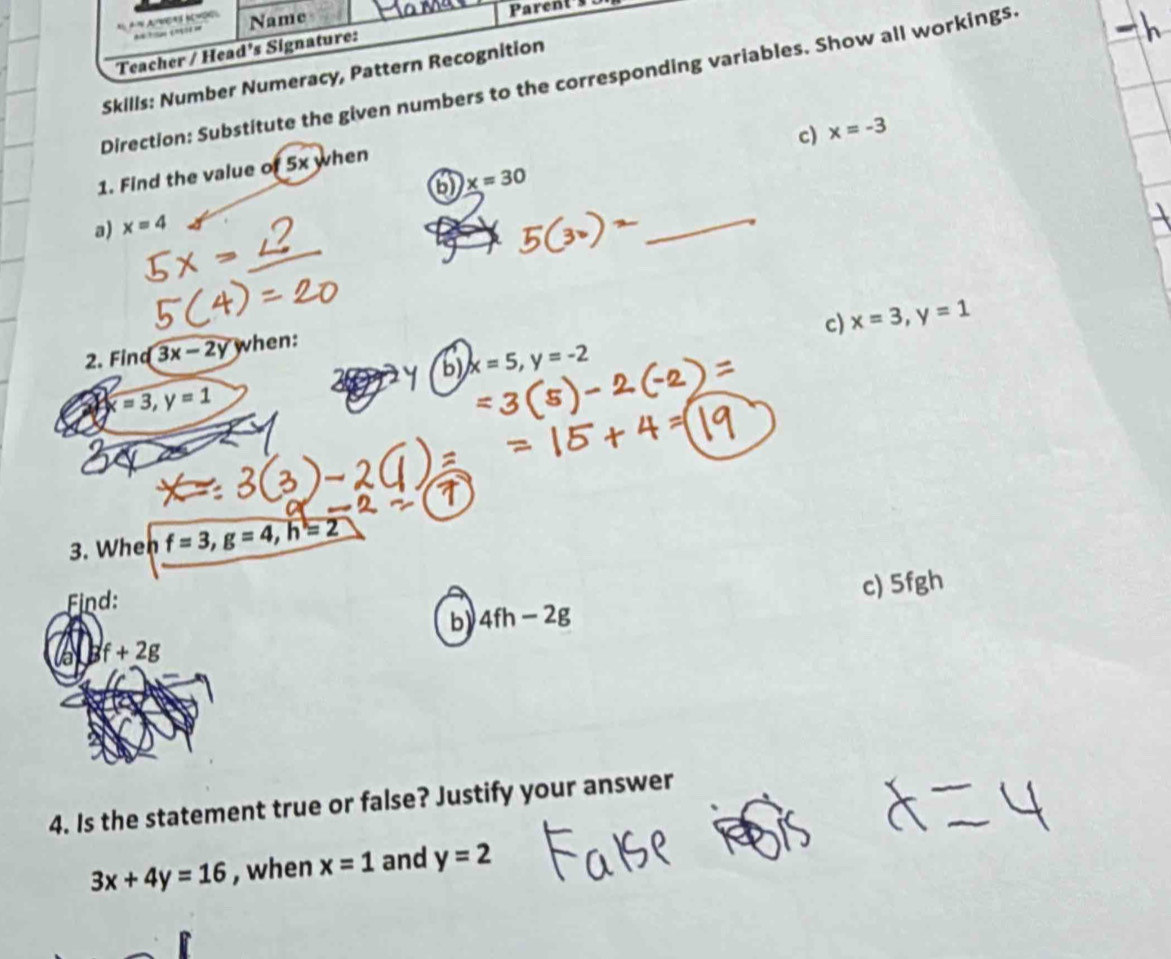 Name Parent's
Teacher / Head's Signature:
Skills: Number Numeracy, Pattern Recognition
Direction: Substitute the given numbers to the corresponding variables. Show all workings.
1. Find the value of 5x when
a) x = 4
b) x = 30
c) x = -3
5x = ?
5(4) = 20
5(30) =
2. Find 3x – 2y when:
x = 3, y = 1
b) x = 5, y = -2
c) x = 3, y = 1
= 3(5) - 2(-2) =
= 15 + 4 = 19
3(3) - 2(1) =
9 - 2 = 7
3. When f = 3, g = 4, h = 2
Find:
a) 3f + 2g
b) 4fh – 2g
c) 5fgh
4. Is the statement true or false? Justify your answer
3x + 4y = 16 , when x = 1 and y = 2
False is x = 4
-h